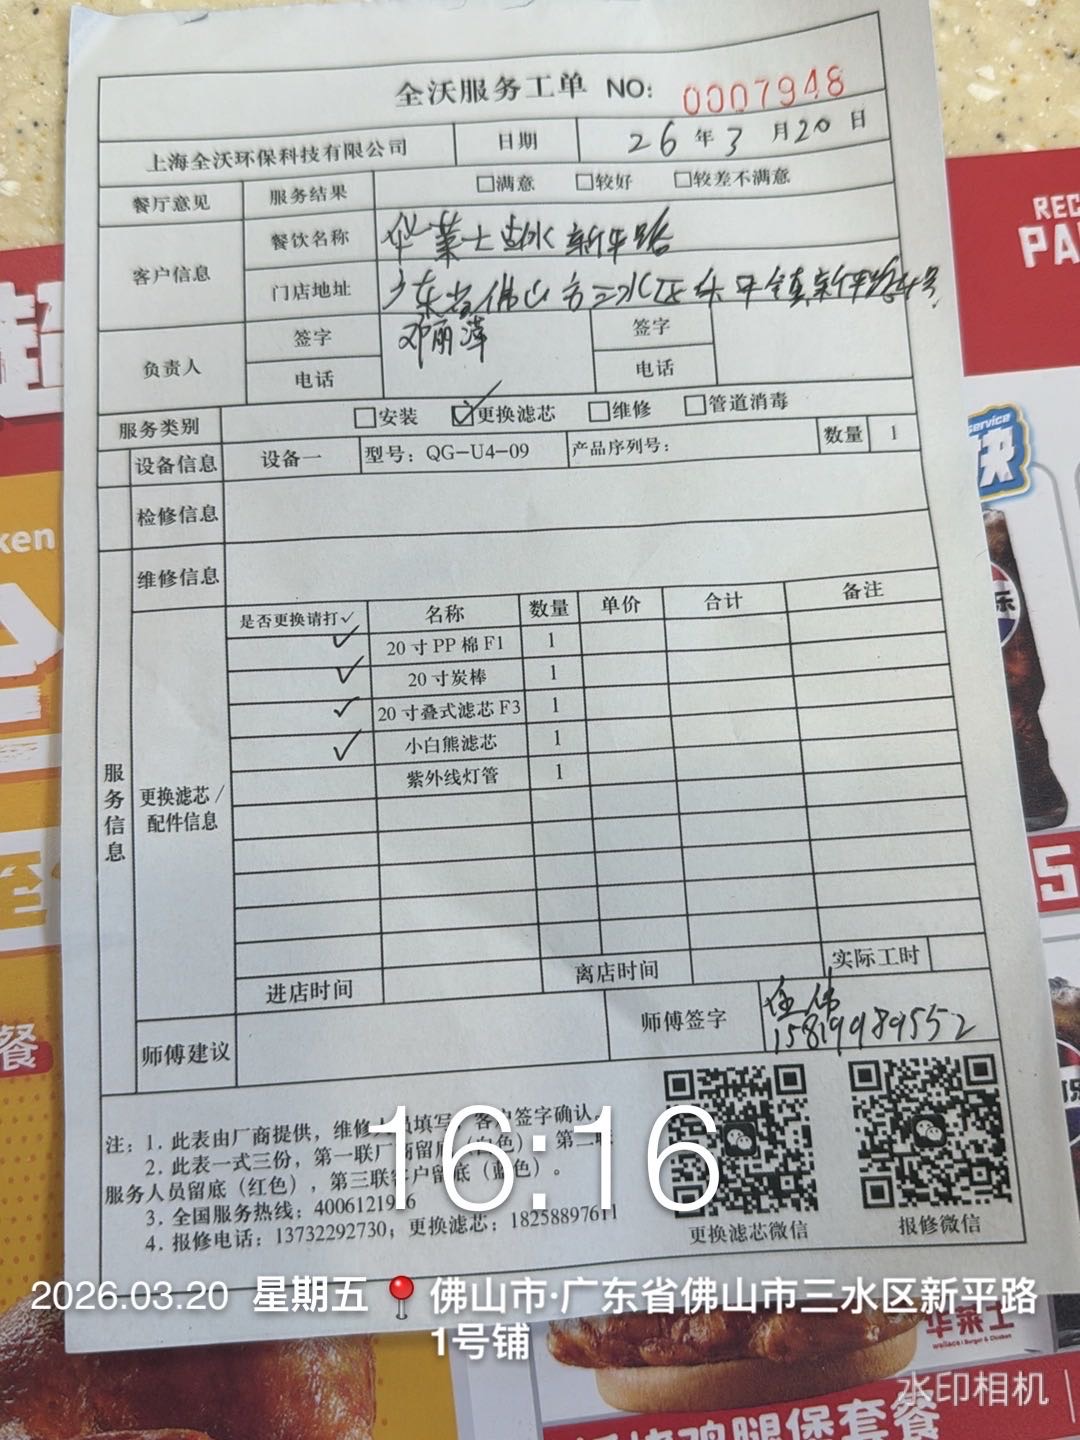 全沃服务工单 NO: 0007948
上海全沃环保科技有限公司 日期 26年3月20日
餐厅意见 服务结果 □满意 □较好 □较差不满意
客户信息 餐饮名称 华莱士 新平路
门店地址 广东省佛山市三水区乐平镇新平路
负责人 签字 邓丽萍 签字
电话 电话
服务类别 □安装 ☑更换滤芯 □维修 □管道消毒
设备信息 设备一 型号：QG-U4-09 产品序列号： 数量 1
检修信息
维修信息
服务信息
更换滤芯/配件信息
是否更换请打✓ 名称 数量 单价 合计 备注
✓ 20寸PP棉F1 1
✓ 20寸炭棒 1
✓ 20寸叠式滤芯F3 1
✓ 小白熊滤芯 1
紫外线灯管 1
进店时间 离店时间 实际工时
师傅建议 师傅签字 伟
15819989552
注：1. 此表由厂商提供，维修人员填写，客户签字确认。
2. 此表一式三份，第一联厂商留底（白色），第二联
服务人员留底（红色），第三联客户留底（蓝色）。
3. 全国服务热线：4006121916
4. 报修电话：13732292730；更换滤芯：18258897611
更换滤芯微信 报修微信
16:16
2026.03.20 星期五 佛山市·广东省佛山市三水区新平路
1号铺
水印相机
华莱士
鸡腿堡套餐
service
REC
PA
ken
餐